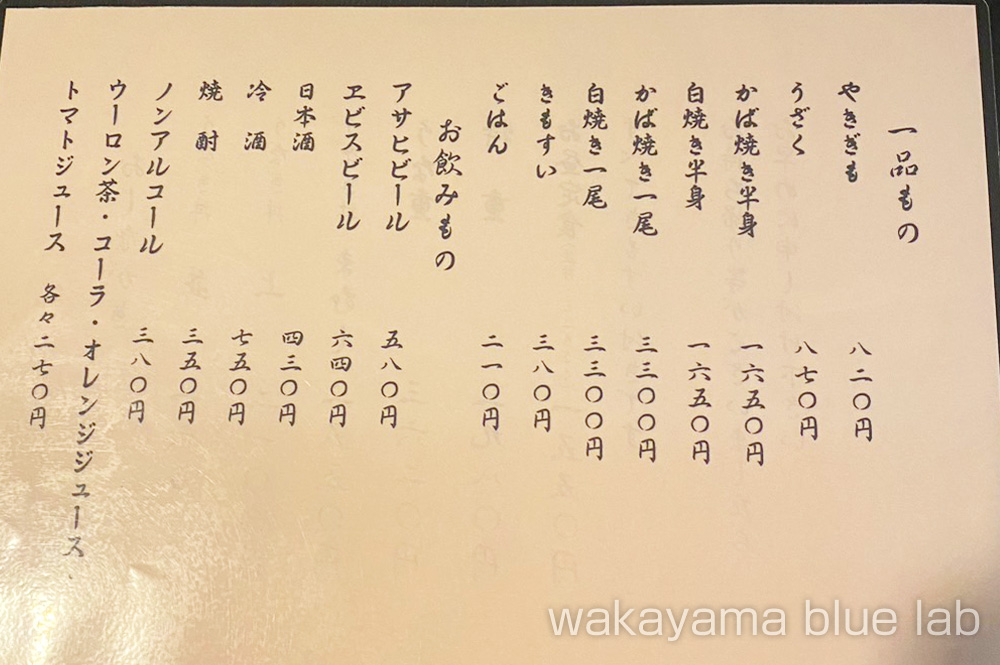 一品もの
やきぎも 八二〇円
うざく 八七〇円
かば焼き半身 一六五〇円
白焼き半身 一六五〇円
かば焼き一尾 三三〇〇円
白焼き一尾 三三〇〇円
きもすい 三八〇円
ごはん 二一〇円
お飲みもの
アサヒビール 五八〇円
ヱビスビール 六四〇円
日本酒 四三〇円
冷酒 七五〇円
焼酎 三五〇円
ノンアルコール 三八〇円
ウーロン茶・コーラ・オレンジジュース、
トマトジュース 各々二七〇円
wakayama blue lab